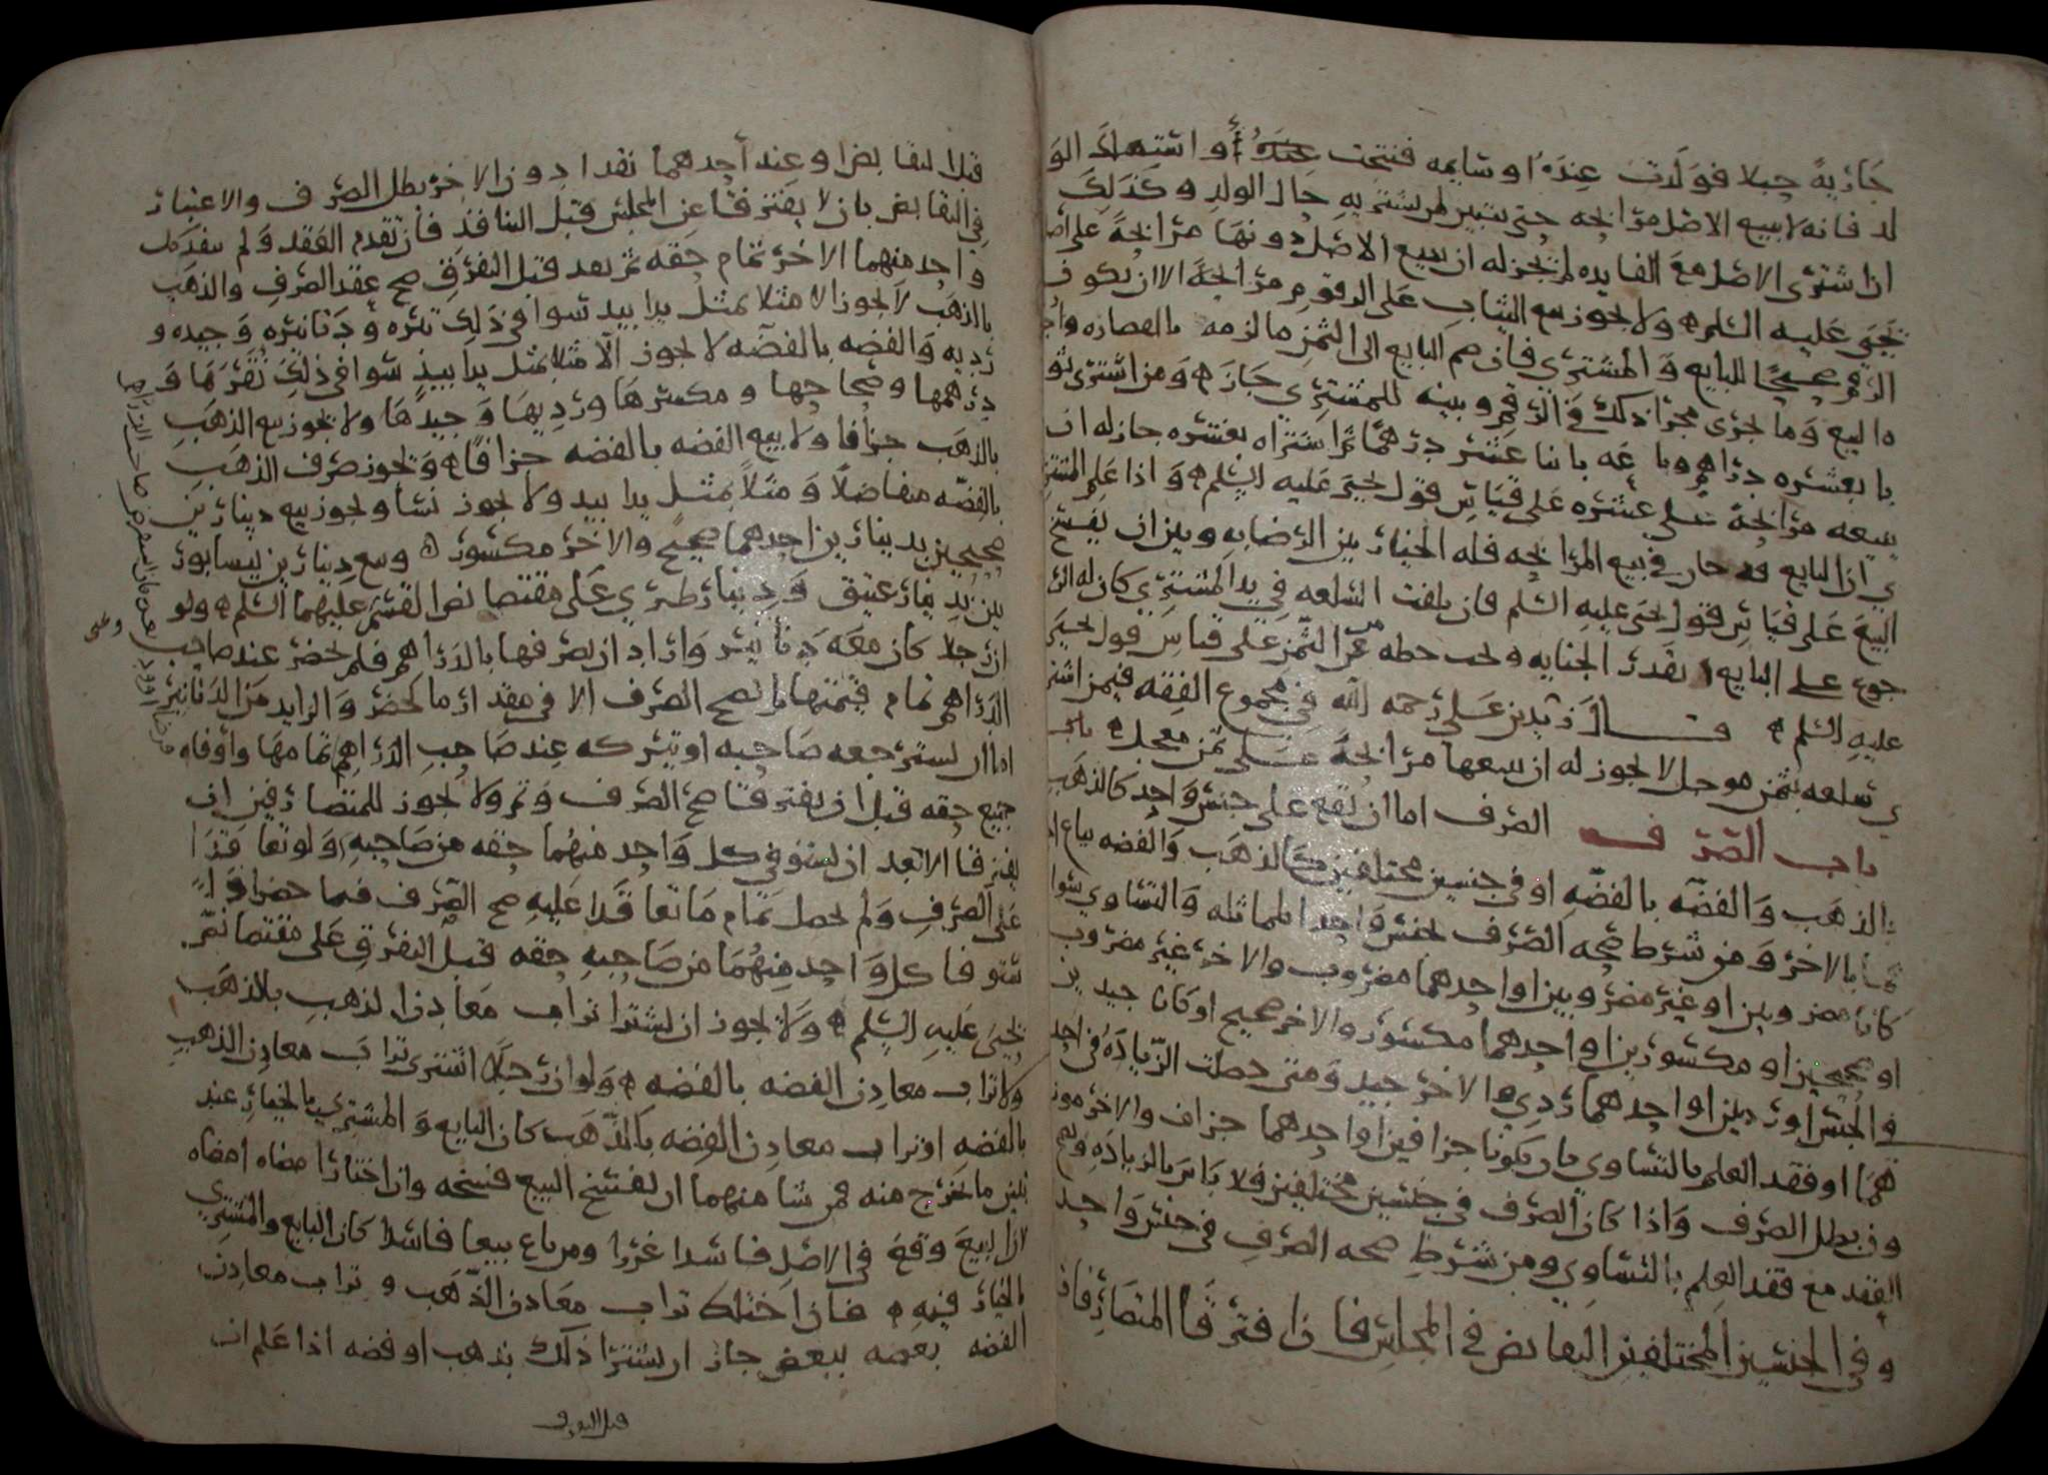 جارية حبلا فولدت عنده او سايمه فنتجت عنده أو استهلك الو
لد فانه لا يبيع الاصل مرابحه حتى يتبين لمن يشتريه حال الولد وكذلك
اذا اشترى الاصل مع الفايده لم يجز له ان يبيع الاصل دونها مرابحة على اصل
يحيى عليه السلم ولا يجوز بيع الثياب على الرقوم مرابحة الا ان يكون
الرقم صحيحا للبايع والمشتري فان ضم البايع الى الثمن ما لزمه بالقصاره واجر
ه البيع وما يجرى مجرا ذلك في الرقم وبينه للمشتري جاز ومن اشترى ثو
با بعشره دراهم وباعه باثنا عشر درهما ثم اشتراه بعشره جاز له ان
يبيعه مرابحة على عشره على قياس قول يحيى عليه السلم واذا علم المشتر
ي ان البايع قد خان في بيع المرابحه فله الخيار بين الرضا به وبين ان يفسخ
البيع على قياس قول يحيى عليه السلم فان تلفت السلعه في يد المشتري كان له الر
جوع على البايع بقدر الخيانه ويجب حطه من الثمن على قياس قول يحيى
عليه السلم قال زيد بن علي رحمه الله في مجموع الفقه فيمن اشتر
ي سلعه بثمن موجل لا يجوز له ان يبيعها مرابحة على ثمن معجل
باب الصرف الصرف اما ان يقع على جنس واحد كالذهب
بالذهب والفضه بالفضه او في جنسين مختلفين كالذهب والفضه يباع احد
هما بالاخر ومن شرط صحه الصرف بجنس واحد المماثله والتساوي سوا
كانا مضروبين او غير مضروبين او احدهما مضروب والاخر غير مضروب
او صحيحين او مكسورين او احدهما مكسور والاخر صحيح او كانا جيدين
في الجنس او رديين او احدهما ردي والاخر جيد ومتى حصلت الزياده في احد
هما او فقد العلم بالتساوي بان يكونا جزافين او احدهما جزاف والاخر موز
ون بطل الصرف واذا كان الصرف في جنسين مختلفين فلا باس بالزياده ويصح
العقد مع فقد العلم بالتساوي ومن شرط صحه الصرف في جنس واحد
وفي الجنسين المختلفين التقابض في المجلس فاذا افترقا المتصارفان
قبل التقابض او عند أحدهما نقدا دون الاخر بطل الصرف والاعتبار
في التقابض بان لا يفترقا عن المجلس قبل التنافذ فان تقدم العقد ولم ينقد كل
واحد منهما الاخر تمام حقه ثم نقد قبل التفرق صح عقد الصرف والذهب
بالذهب لا يجوز الا مثلا بمثل يدا بيد سوا في ذلك تبره ودنانيره وجيده و
رديه والفضه بالفضه لا يجوز الا مثلا بمثل يدا بيد سوا في ذلك نقرها و
درهمها وصحاحها ومكسرها ورديها وجيدها ولا يجوز بيع الذهب
بالذهب جزافا ولا بيع الفضه بالفضه جزافا ويجوز صرف الذهب
بالفضه متفاضلا ومثلا بمثل يدا بيد ولا يجوز نسأ ويجوز بيع دينارين
صحيحين بدينارين احدهما صحيح والاخر مكسور وبيع دينارين نيسابور
يين بدينار عتيق ودينار طبري على مقتضا نص القسم عليهما السلم ولو
ان رجلا كان معه دنانير واراد ان يصرفها بالدراهم فلم يحضر عند صاحب
الدراهم تمام قيمتها لم يصح الصرف الا في مقدار ما يحضر والزايد من الدنانير
اما ان يسترجعه صاحبه او يتركه عند صاحب الدراهم تمامها واوفاه
جميع حقه قبل ان يفترقا صح الصرف وتم ولا يجوز للمتصارفين ان
يفترقا الا بعد ان يستوفي كل واحد منهما حقه من صاحبه ولو تعاقدا
على الصرف ولم يحصل تمام ما تعاقدا عليه صح الصرف فيما حضر اذا
ستوفا كل واحد منهما من صاحبه حقه قبل التفرق على مقتضا نص
يحيى عليه السلم ولا يجوز ان يشترا تراب معادن الذهب بالذهب
ولا تراب معادن الفضه بالفضه ولو ان رجلا اشترى تراب معادن الذهب
بالفضه او تراب معادن الفضه بالذهب كان البايع والمشتري بالخيار عند
تبين ما يخرج منه فمن شا منهما ان يفسخ البيع فسخه وان اختارا مضاه امضاه
لان البيع وقع في الاصل فاسدا غررا ومن باع بيعا فاسدا كان البايع والمشتري
بالخيار فيه فاذا اختلط تراب معادن الذهب وتراب معادن
الفضه بعضه ببعض جاز ان يشترا ذلك بذهب او فضه اذا علم ان